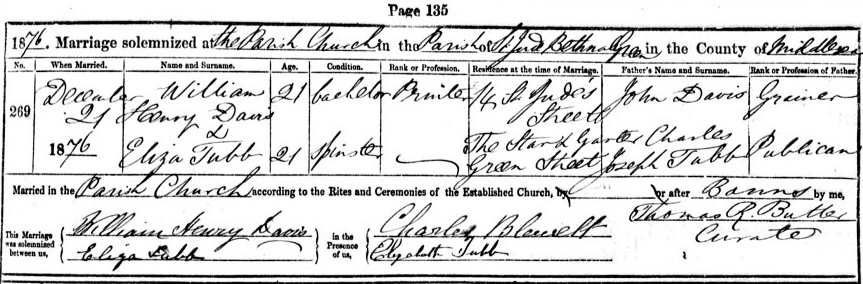 Page 135
1876. Marriage solemnized at the Parish Church in the Parish of St Jude Bethnal Green in the County of Middlesex
No. When Married. Name and Surname. Age. Condition. Rank or Profession. Residence at the time of Marriage. Father's Name and Surname. Rank or Profession of Father.
269 December 21 1876 William Henry Davis 21 bachelor Printer 14 St Jude's Street John Davis Grainer
& Eliza Tubb 21 Spinster — The Star & Garter Green Street Charles Joseph Tubb Publican
Married in the Parish Church according to the Rites and Ceremonies of the Established Church, by or after Banns by me,
This Marriage was solemnized between us, William Henry Davis Eliza Tubb in the Presence of us, Charles Blewett Elizabeth Tubb Thomas R. Butler Curate